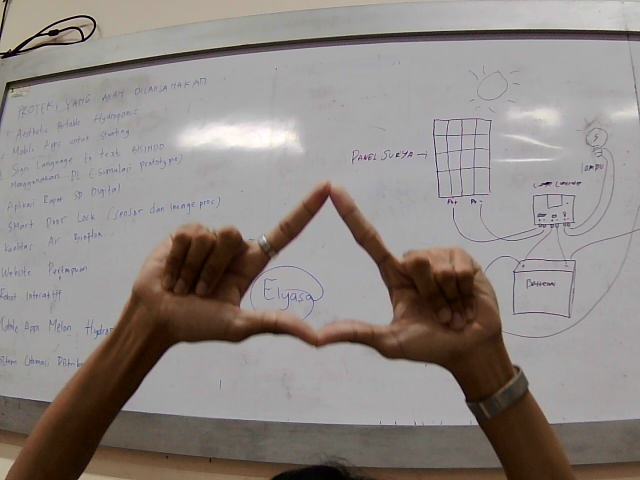 PROYEK YANG AKAN DILAKSANAKAN
Aesthetic Portable Hydroponic
Mobile Apps untuk Stunting
Sign Language to text BISINDO
Menggunakan DL (Simulasi prototype)
Aplikasi Rapor SD Digital
Smart Door Lock (sensor dan image proc)
Kualitas Air
Website Perempuan
Robot Interaktif
Mobile Apps Melon Hydro
Sistem Otomasi Distrib
Elyasa
PANEL SURYA
LAMPU
Baterai